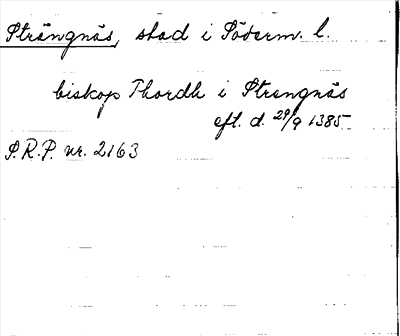 Strängnäs, stad i Söderm. l.
biskop Thordh i Strengnäs
eft. d. 29/9 1385
S.R.P. nr. 2163